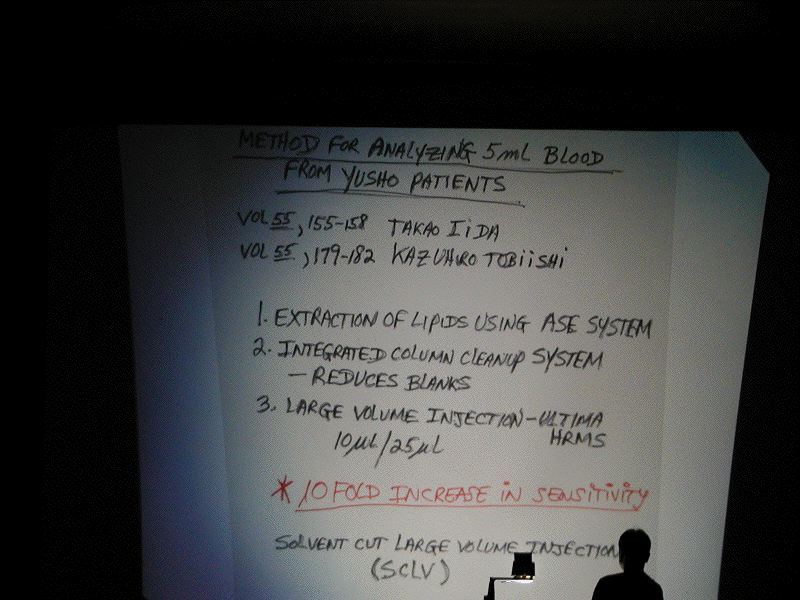 METHOD FOR ANALYZING 5mL BLOOD
FROM YUSHO PATIENTS
VOL 55, 155-158 TAKAO IiDA
VOL 55, 179-182 KAZUHIRO TOBiiSHi
1. EXTRACTION OF LIPIDS USING ASE SYSTEM
2. INTEGRATED COLUMN CLEANUP SYSTEM
— REDUCES BLANKS
3. LARGE VOLUME INJECTION - ULTIMA
HRMS
10µL/25µL
* 10 FOLD INCREASE iN SENSiTiViTY
SOLVENT CUT LARGE VOLUME INJECTION
(SCLV)